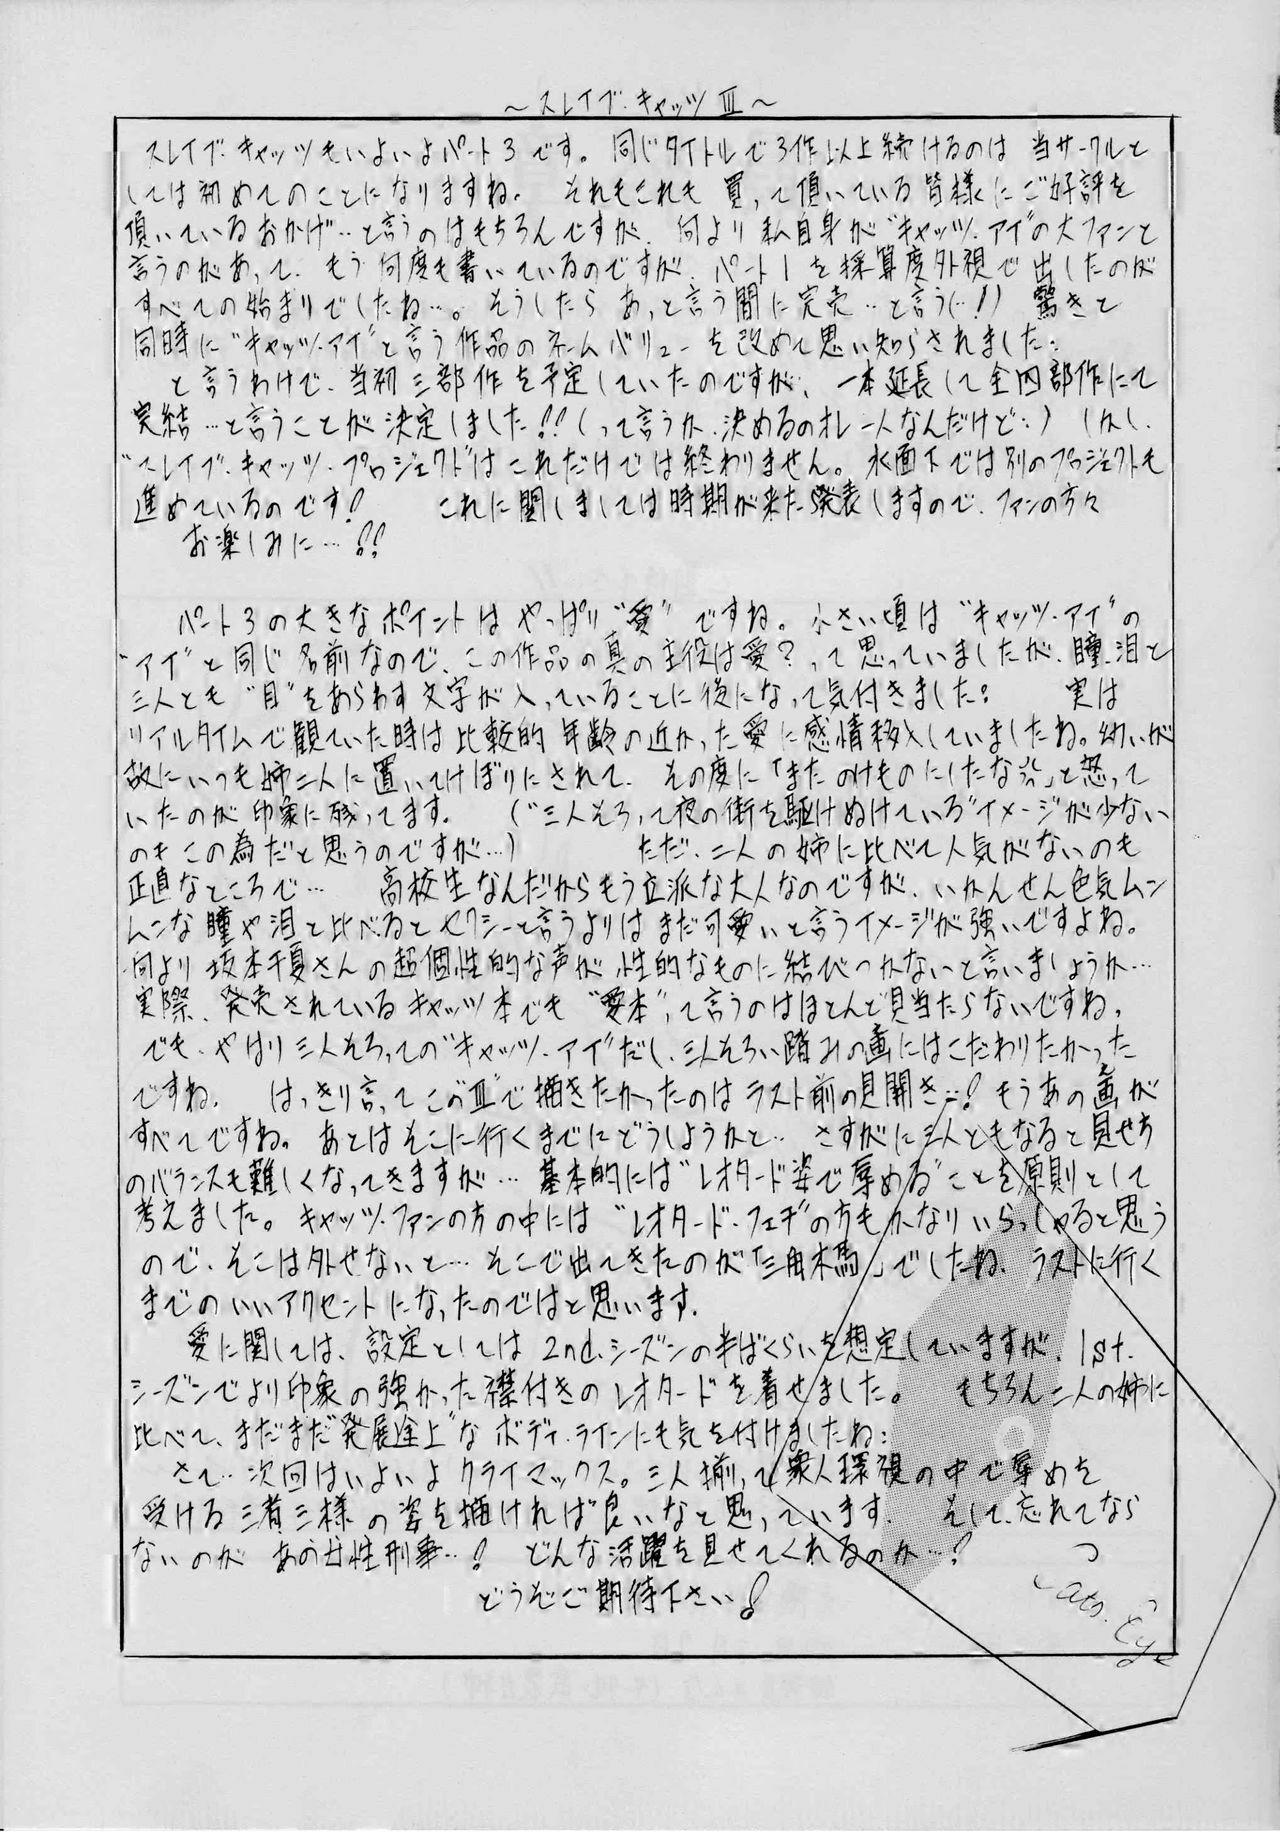 ～スレイブ・キャッツⅢ～
スレイブ・キャッツもいよいよパート3です。同じタイトルで3作以上続けるのは当サークルと
しては初めてのことになりますね。それもこれも買って頂いている皆様にご好評を
頂いているおかげ…と言うのはもちろんですが、何より私自身が“キャッツ・アイ”の大ファンと
言うのがあって、もう何度も書いているのですが、パート1を採算度外視で出したのが
すべての始まりでしたね…。そうしたらあっと言う間に完売…と言う(…!) 驚きと
同時に“キャッツ・アイ”と言う作品のネームバリューを改めて思い知らされました…
と言うわけで、当初三部作を予定していたのですが、一本延長して全四部作にて
完結…と言うことが決定しました!!(って言うか、決めるのオレ一人なんだけど…) しかし、
“スレイブ・キャッツ・プロジェクト”はこれだけでは終わりません。水面下では別のプロジェクトも
進めているのです! これに関しましては時期が来たら発表しますので、ファンの方々
お楽しみに…!!
パート3の大きなポイントはやっぱり“愛”ですね。小さい頃は“キャッツ・アイ”の
“アイ”と同じ名前なので、この作品の真の主役は愛?って思っていましたが、瞳、泪と
三人とも“目”をあらわす文字が入っていることに後になって気付きました… 実は
リアルタイムで観ていた時は比較的年齢の近かった愛に感情移入していましたね。幼いが
故にいつも姉二人に置いてけぼりにされて、その度に「またのけものにしたな」と怒って
いたのが印象に残ってます。(“三人そろって夜の街を駆けぬけている”イメージが少ない
のもこの為だと思うのですが…) ただ、二人の姉に比べて人気がないのも
正直なところで… 高校生なんだからもう立派な大人なのですが、いかんせん色気ムン
ムンな瞳や泪と比べるとセクシーと言うよりはまだ可愛いと言うイメージが強いですよね。
何より坂本千夏さんの超個性的な声が性的なものに結びつかないと言いましょうか…
実際、発売されているキャッツ本でも“愛本”って言うのはほとんど見当たらないですね。
でも、やはり三人そろっての“キャッツ・アイ”だし、三人そろい踏みの画にはこだわりたかった
ですね。はっきり言ってこの“Ⅲ”で描きたかったのはラスト前の見開き…! もうあの画が
すべてですね。あとはそこに行くまでにどうしようかと… さすがに三人ともなると見せ方
のバランスも難しくなってきますが… 基本的には“レオタード姿で辱める”ことを原則として
考えました。キャッツ・ファンの方の中には“レオタード・フェチ”の方もかなりいらっしゃると思う
ので、そこは外せないと… そこで出てきたのが「三角木馬」でしたね。ラストに行く
までのいいアクセントになったのではと思います。
愛に関しては、設定としては2nd.シーズンの半ばくらいを想定していますが、1st.
シーズンでより印象の強かった襟付きのレオタードを着せました。もちろん二人の姉に
比べて、まだまだ“発展途上”なボディ・ラインにも気を付けましたね…
さて…次回はいよいよクライマックス。三人揃って衆人環視の中で辱めを
受ける三者三様の姿を描ければ良いなと思っています。そして、忘れてなら
ないのがあの女性刑事…! どんな活躍を見せてくれるのか…?
どうぞご期待下さい!
Cats・Eye